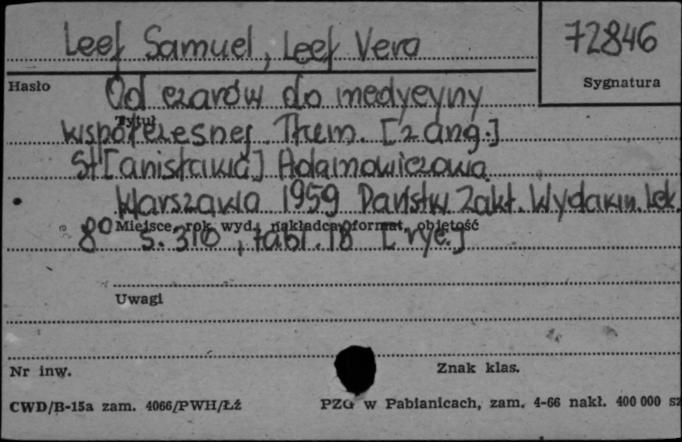 Leef Samuel, Leef Vera
72846
Hasło
Sygnatura
Od czarów do medycyny
Tytuł
współczesnej. Tłum. [z ang.]
St[anisława] Adamowiczowa.
Warszawa 1959 Państw. Zakł. Wydawn. Lek.
Miejsce, rok wyd., nakładca, format, objętość
8° s. 310, tabl. 18 [ryc.]
Uwagi
Nr inw.
Znak klas.
CWD/B-15a zam. 4066/PWH/Łź
PZG w Pabianicach, zam. 4-66 nakł. 400 000 sz